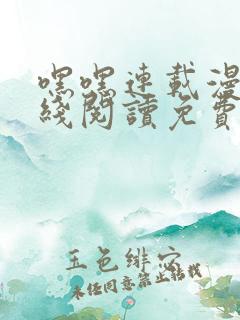 嘿嘿連載漫
綫閱讀免費
玉色緋穴
未经同意禁止转载